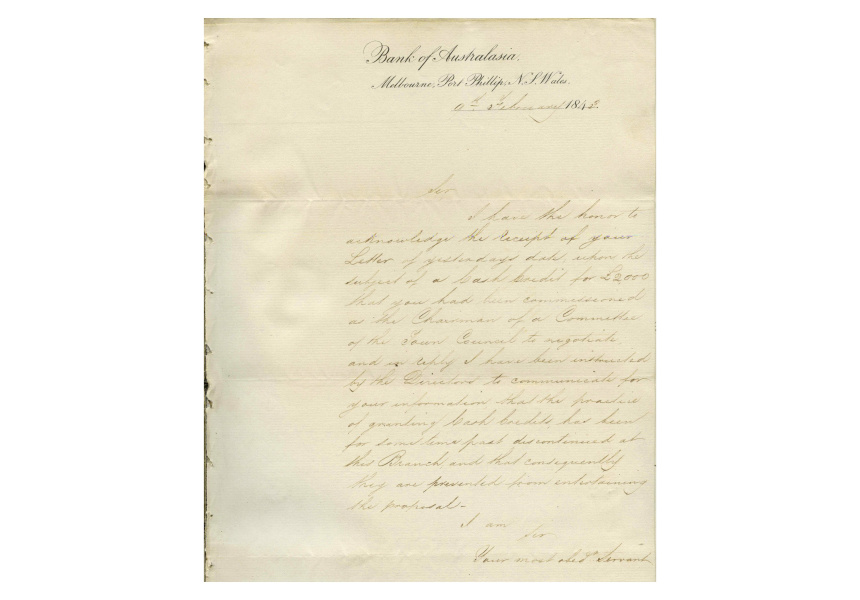 Bank of Australasia.
Melbourne, Port Phillip, N.S. Wales.
9th February 1843.
Sir
I have the honor to
acknowledge the receipt of your
Letter of yesterdays date, upon the
subject of a Cash Credit for £2,000
that you had been commissioned
as the Chairman of a Committee
of the Town Council to negotiate,
and in reply I have been instructed
by the Directors to communicate for
your information that the practice
of granting Cash Credits, has been
for some time past discontinued at
this Branch, and that consequently
they are prevented from entertaining
the proposal-
I am
Sir
Your most obedt. Servant